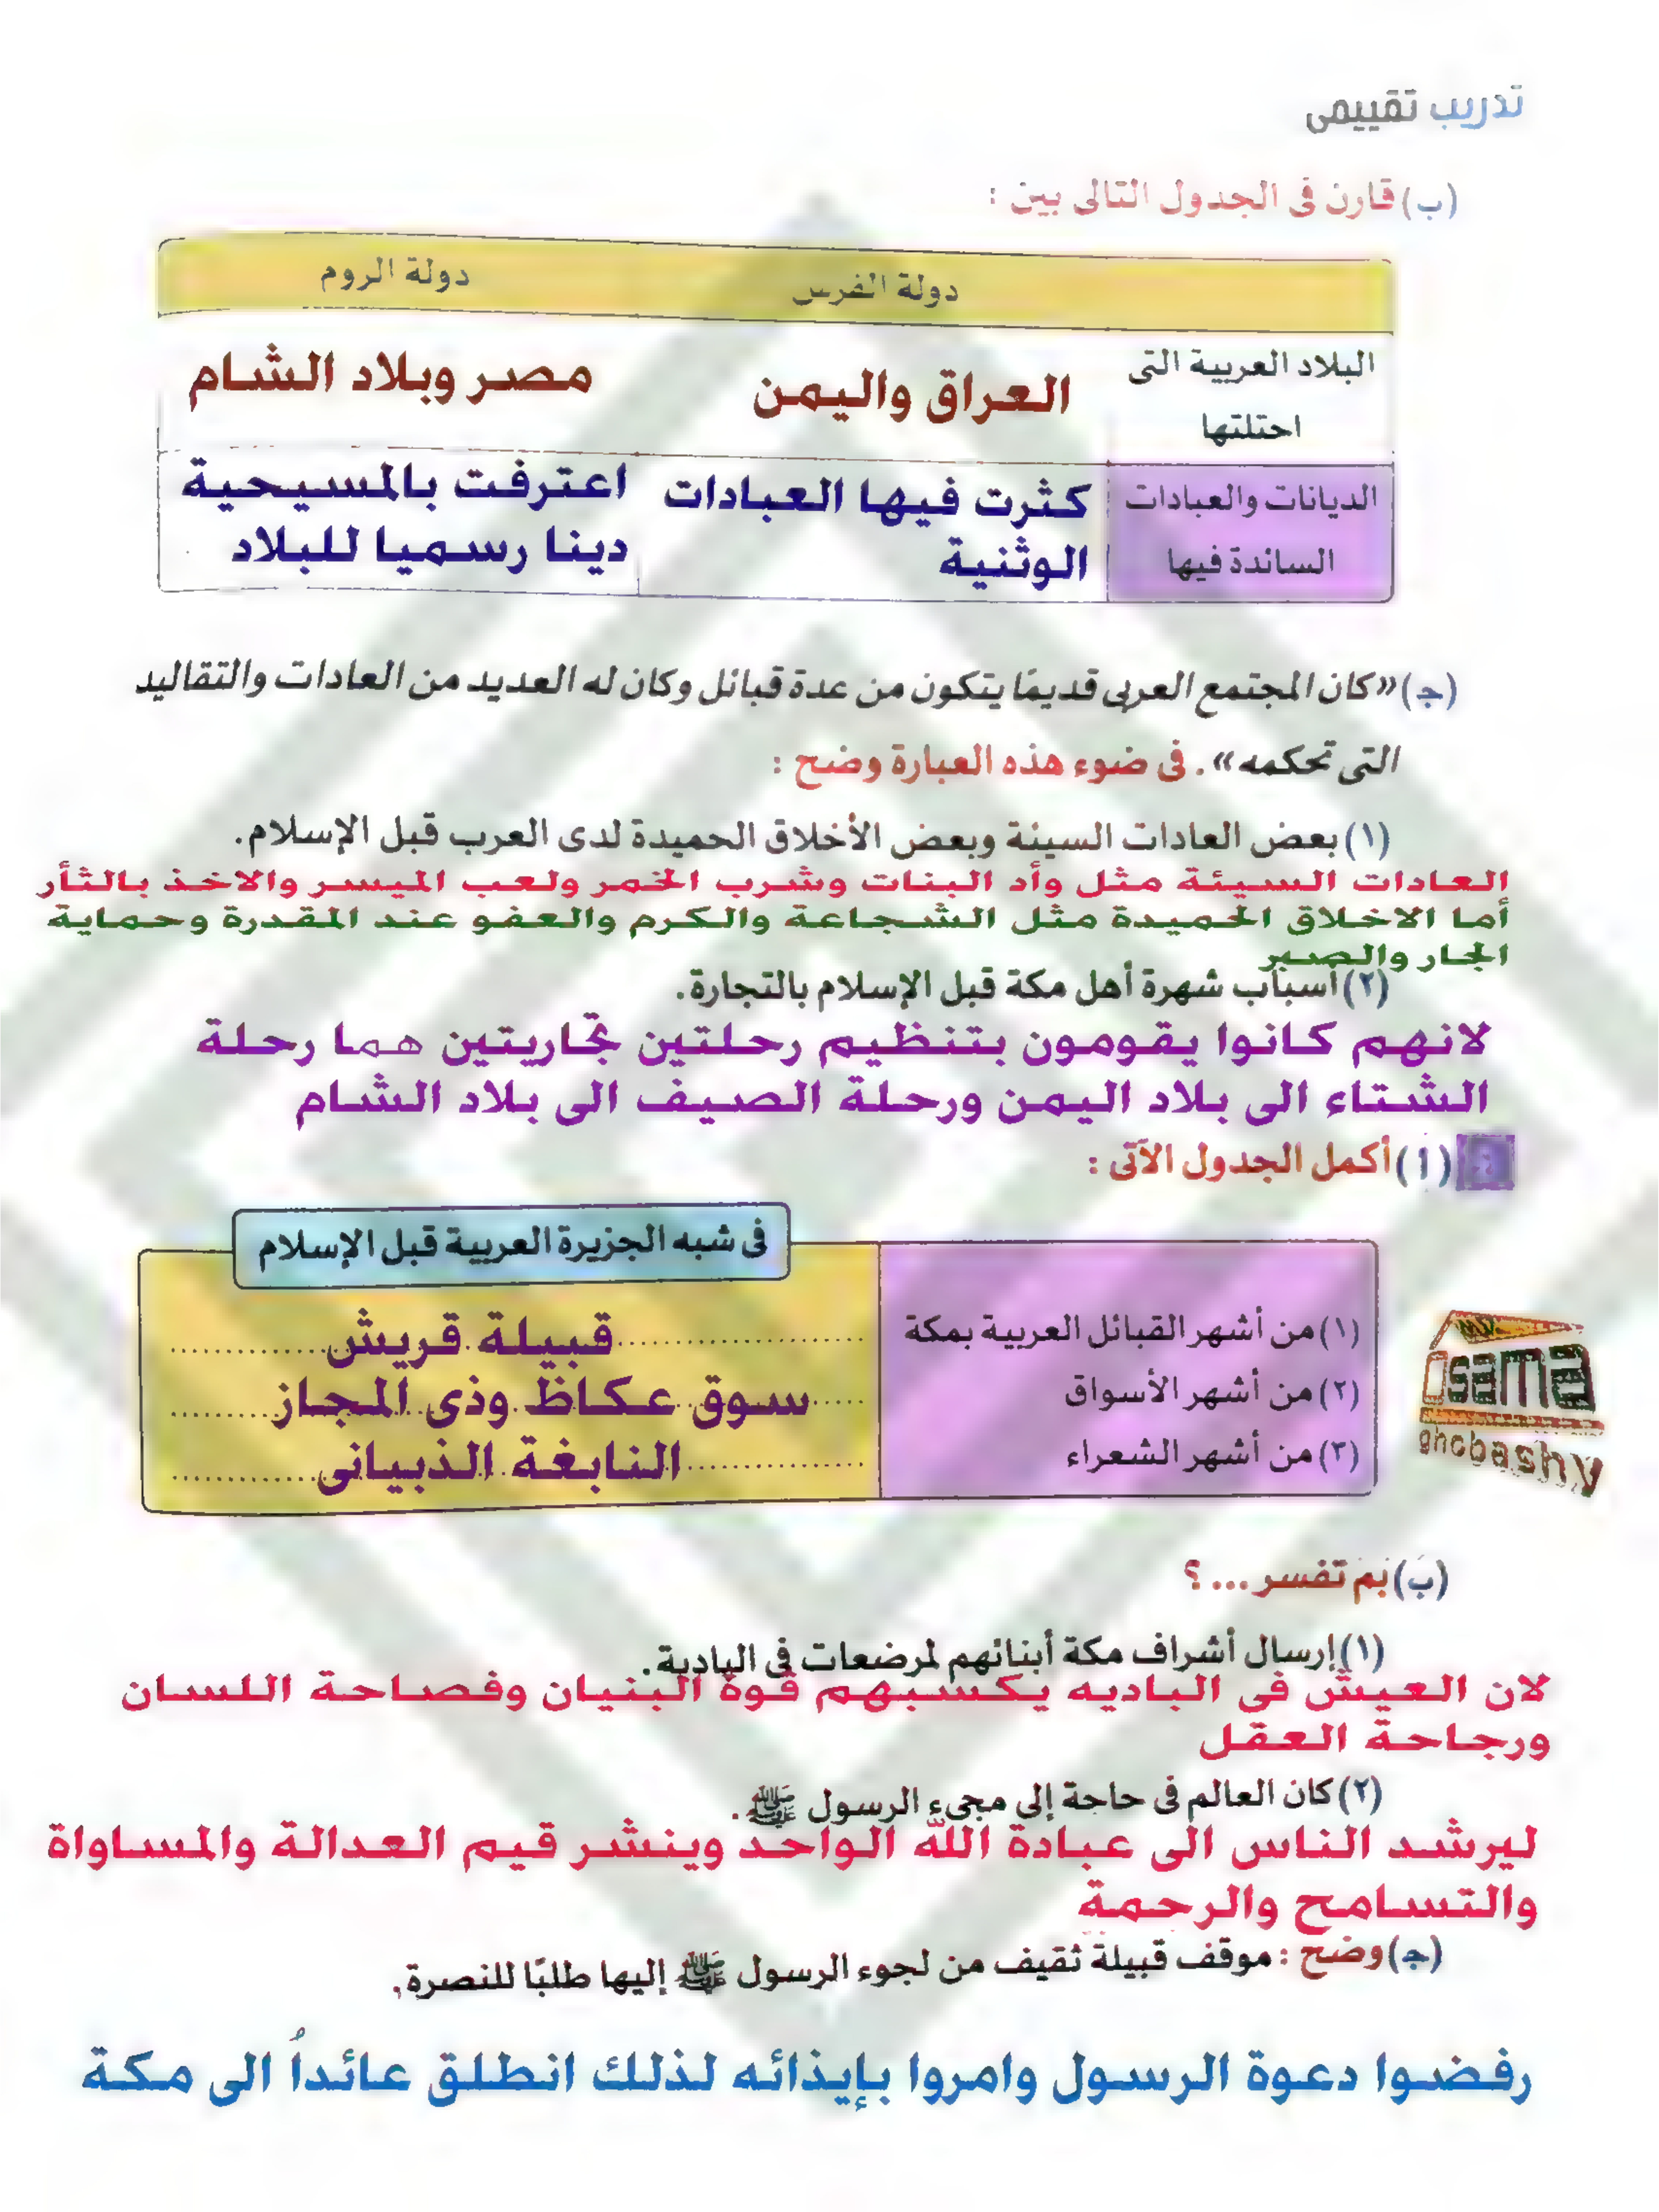 تدريب تقييمى
(ب) قارن فى الجدول التالى بين :
دولة الفرس دولة الروم
البلاد العربية التى
احتلتها
العراق واليمن
مصر وبلاد الشام
الديانات والعبادات
السائدة فيها
كثرت فيها العبادات
الوثنية
اعترفت بالمسيحية
دينا رسميا للبلاد
(ج) «كان المجتمع العربى قديمًا يتكون من عدة قبائل وكان له العديد من العادات والتقاليد
التى تحكمه». فى ضوء هذه العبارة وضح :
(١) بعض العادات السيئة وبعض الأخلاق الحميدة لدى العرب قبل الإسلام.
العادات السيئة مثل وأد البنات وشرب الخمر ولعب الميسر والاخذ بالثأر
أما الاخلاق الحميدة مثل الشجاعة والكرم والعفو عند المقدرة وحماية
الجار والصبر
(٢) أسباب شهرة أهل مكة قبل الإسلام بالتجارة.
لانهم كانوا يقومون بتنظيم رحلتين تجاريتين هما رحلة
الشتاء الى بلاد اليمن ورحلة الصيف الى بلاد الشام
(أ) أكمل الجدول الآتى :
فى شبه الجزيرة العربية قبل الإسلام
(١) من أشهر القبائل العربية بمكة قبيلة قريش
(٢) من أشهر الأسواق سوق عكاظ وذى المجاز
(٣) من أشهر الشعراء النابغة الذبيانى
osama
ghobashy
(ب) بم تفسر ... ؟
(١) إرسال أشراف مكة أبنائهم لمرضعات فى البادية.
لان العيش فى الباديه يكسبهم قوة البنيان وفصاحة اللسان
ورجاحة العقل
(٢) كان العالم فى حاجة إلى مجىء الرسول ﷺ.
ليرشد الناس الى عبادة الله الواحد وينشر قيم العدالة والمساواة
والتسامح والرحمة
(ج) وضح : موقف قبيلة ثقيف من لجوء الرسول ﷺ إليها طلبًا للنصرة.
رفضوا دعوة الرسول وامروا بإيذائه لذلك انطلق عائداً الى مكة